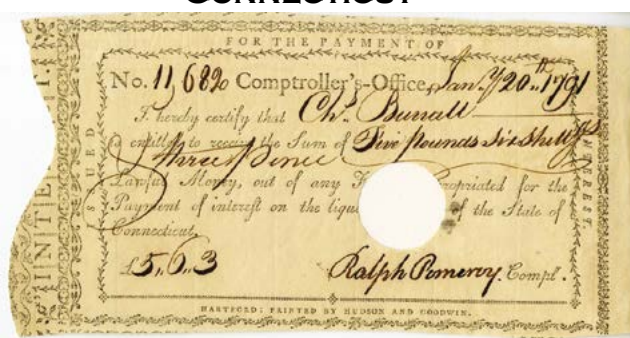 CONNECTICUT
FOR THE PAYMENT OF
No. 11,689 Comptroller's-Office, Jan.y 20.th 1791
I hereby certify that Ch.s Burrall
is entitled to receive the Sum of Five Pounds Six Shill.gs
& three Pence
Lawful Money, out of any F ropriated for the
Payment of interest on the liqui of the State of
Connecticut.
£5,,6,,3 Ralph Pomeroy. Compl.r
HARTFORD: PRINTED BY HUDSON AND GOODWIN.
ISSUED
INTEREST